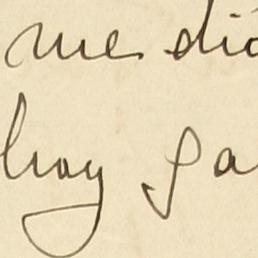 me dio
hay ga